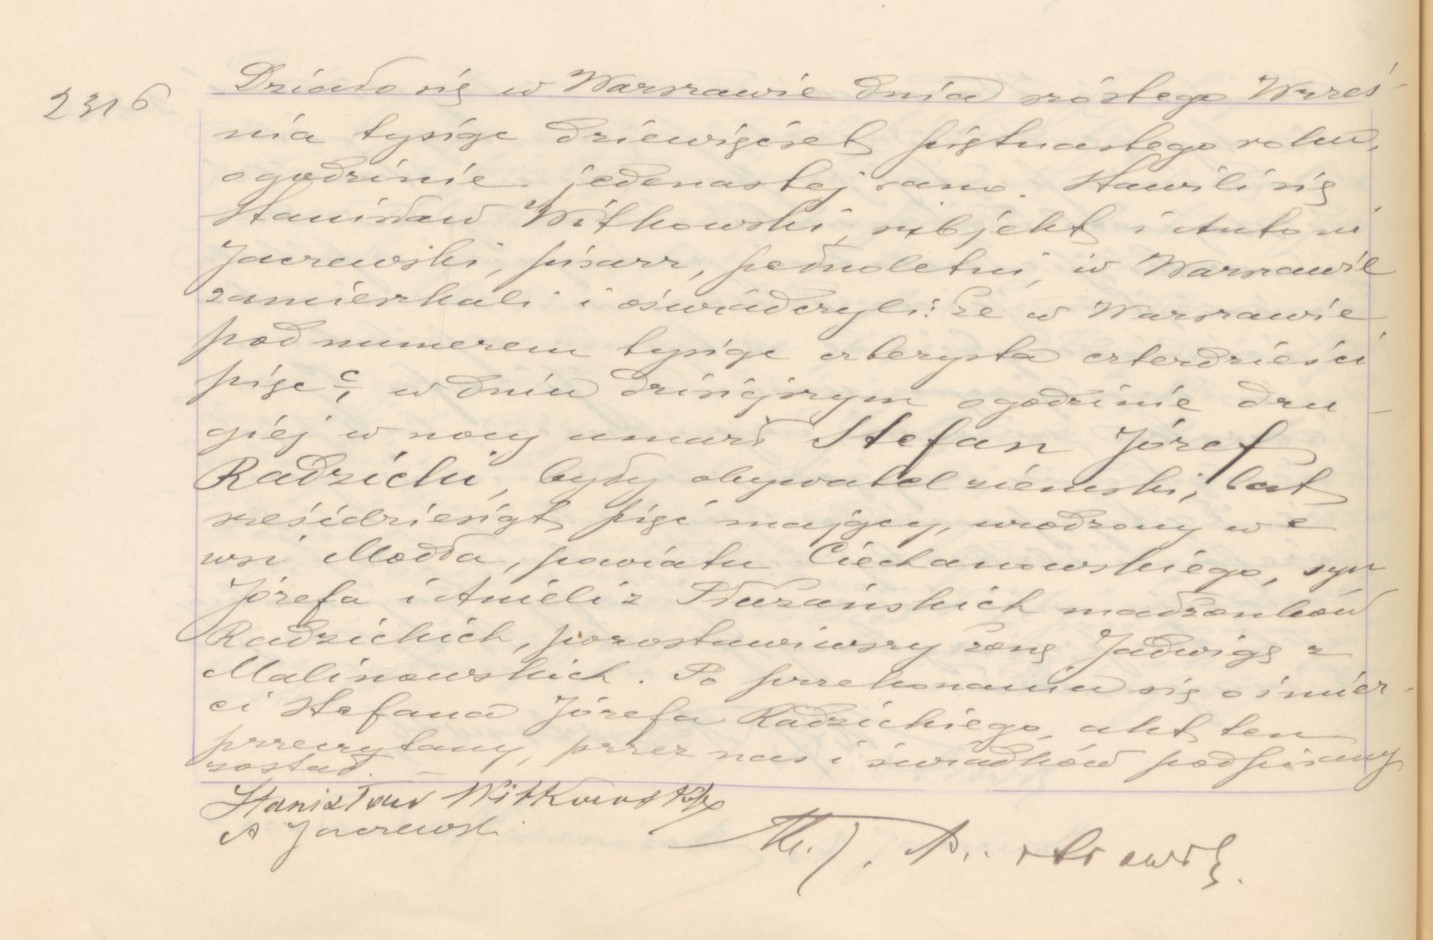 2316
Działo się w Warszawie dnia szóstego Wrześ-
nia tysiąc dziewięćset piętnastego roku,
o godzinie jedenastej rano. Stawili się
Stanisław Witkowski, subjekt i Antoni
Jaczewski, pisarz, pełnoletni, w Warszawie
zamieszkali i oświadczyli: że w Warszawie
pod numerem tysiąc czterysta czterdzieści
pięć c, w dniu dzisiejszym o godzinie dru-
giej w nocy umarł Stefan Józef
Radzicki, były obywatel ziemski, lat
sześćdziesiąt pięć mający, urodzony we
wsi Modła, powiatu Ciechanowskiego, syn
Józefa i Anieli z małżonków
Radzickich, pozostawiwszy żonę Jadwigę z
Malinowskich. Po przekonaniu się o śmier-
ci Stefana Józefa Radzickiego, akt ten
przeczytany, przez nas i świadków podpisany
został.
Stanisław Witkowski
A Jaczewski